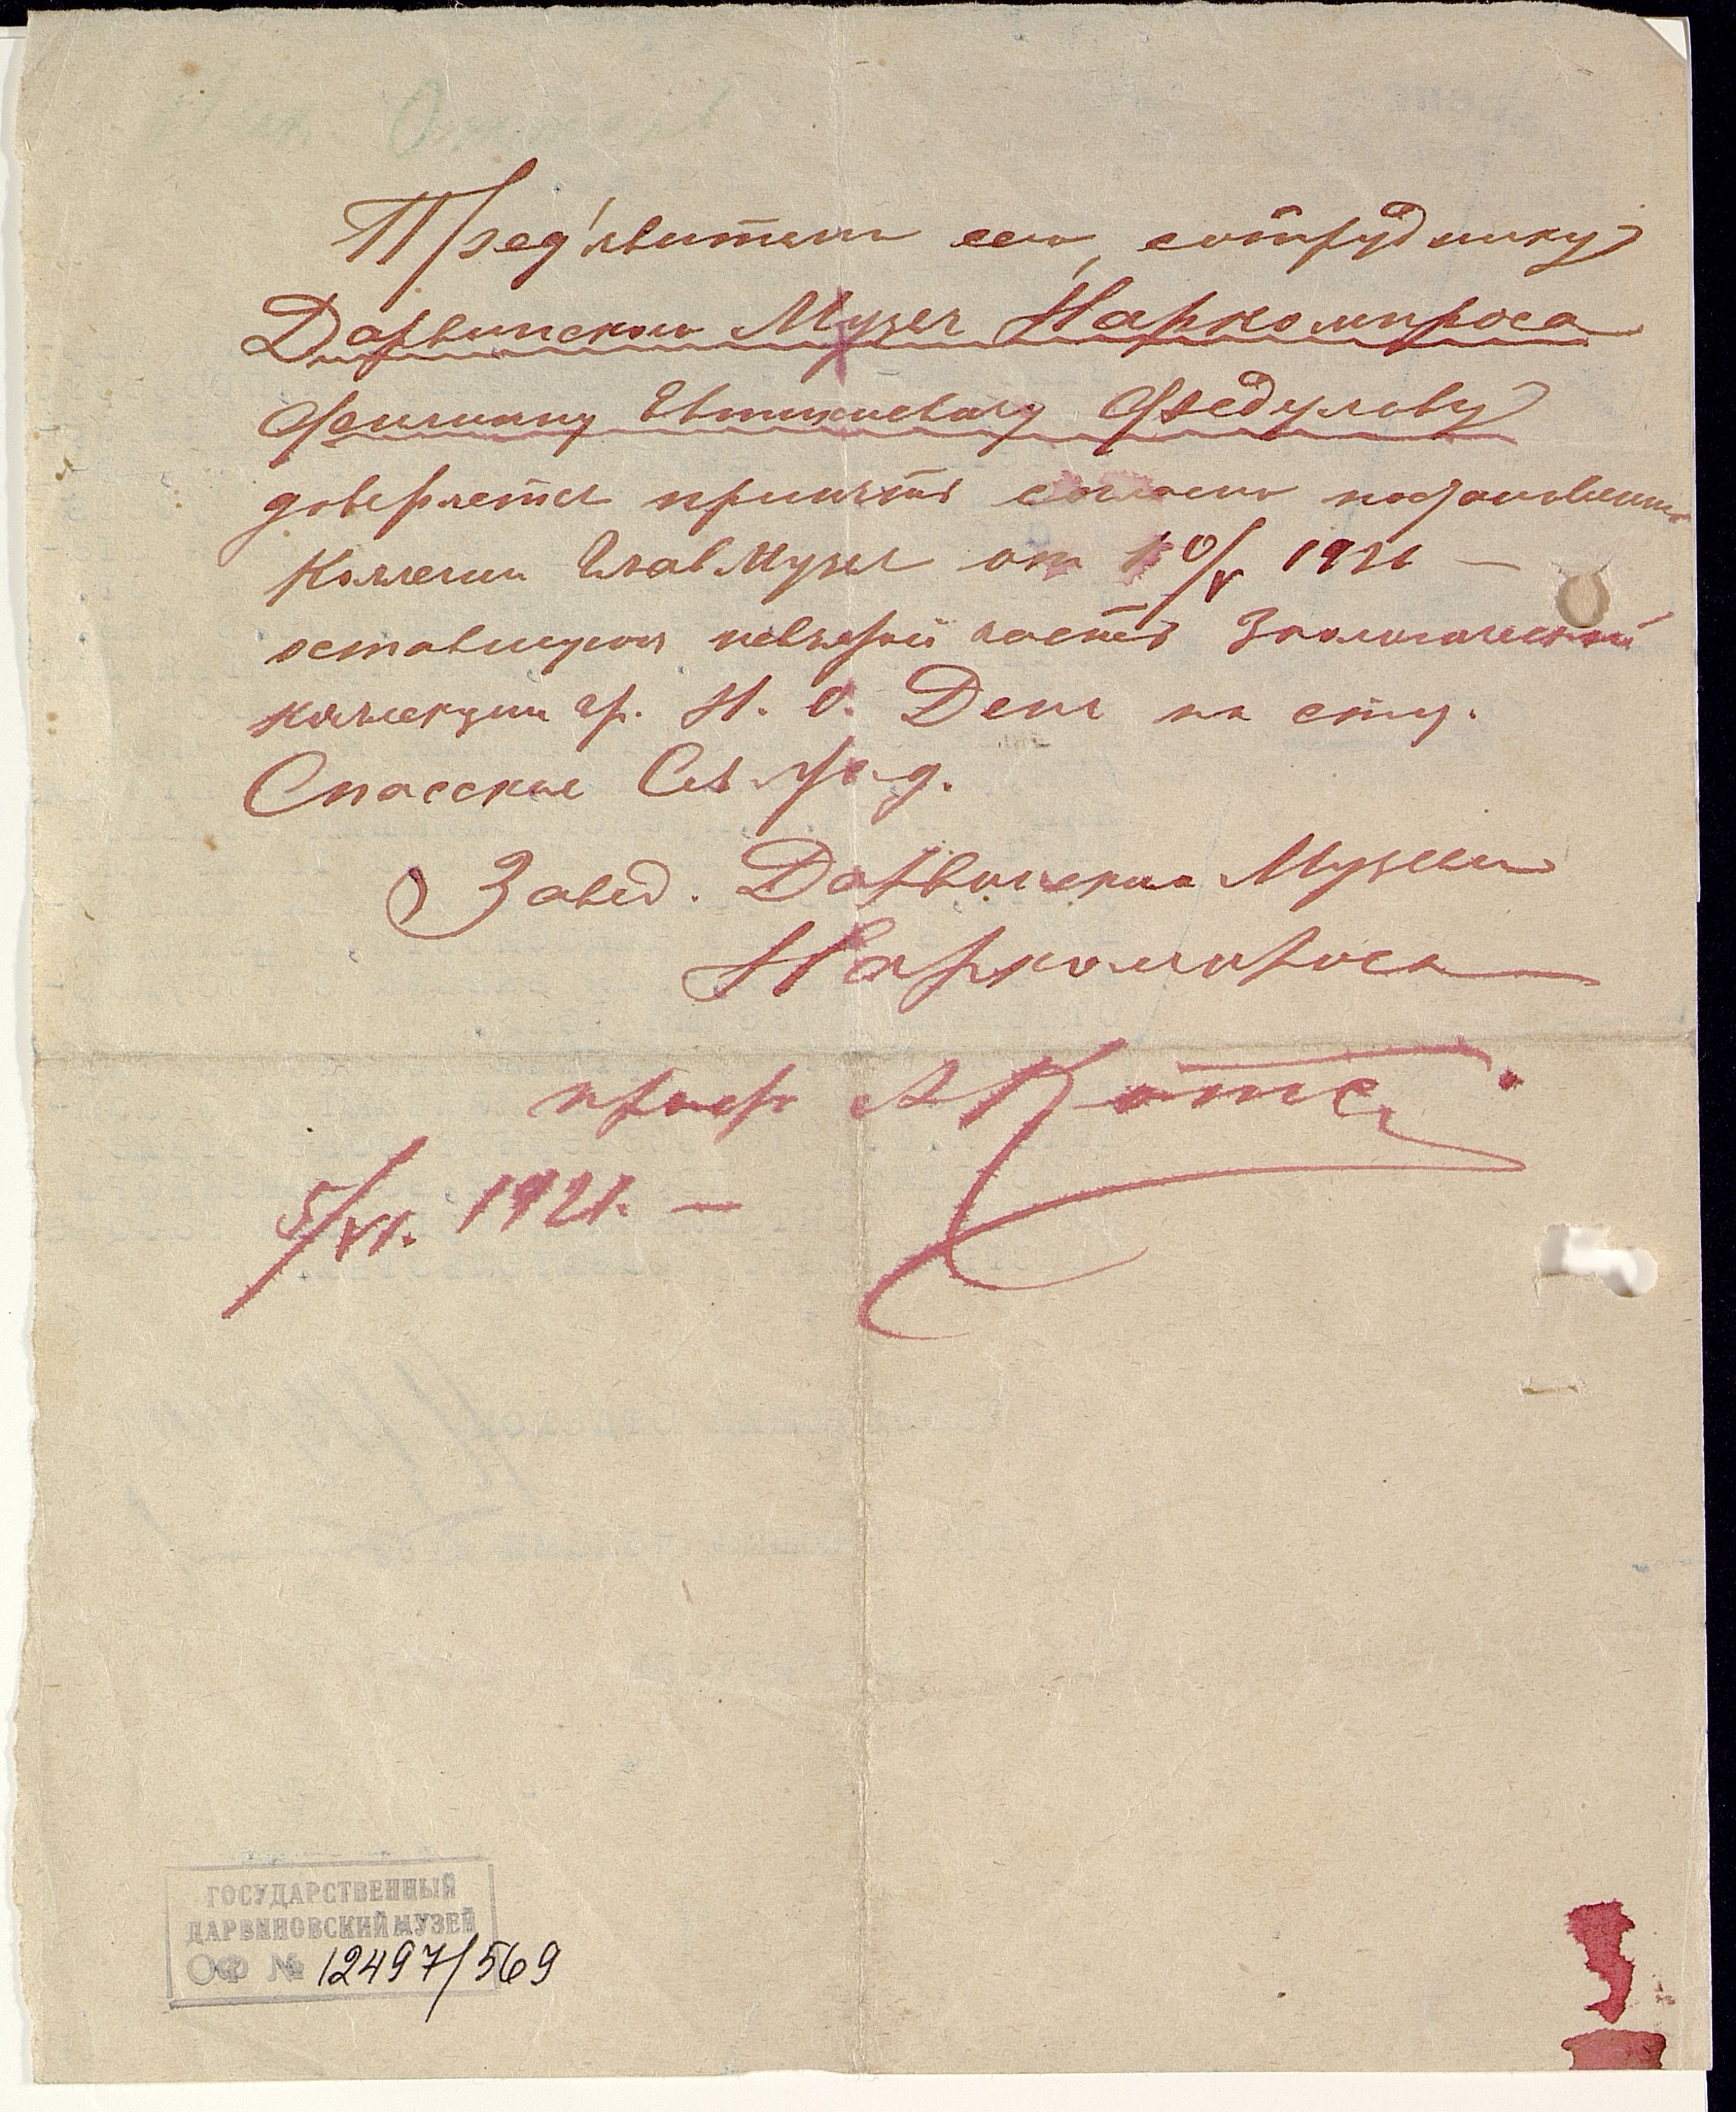 Пред'явителю сего, сотруднику
Дарвинского Музея Наркомпроса
Филиппу Евтихиевичу Федулову
доверяется принять согласно постановлению
Коллегии ГлавМузея от 10/V 1921 —
оставшуюся часть Зоологической
коллекции гр. на ст.
Спасское
Завед. Дарвинским Музеем
Наркомпроса
проф АКотс
5/VI. 1921. —
ГОСУДАРСТВЕННЫЙ
ДАРВИНОВСКИЙ МУЗЕЙ
ОФ № 12497/569